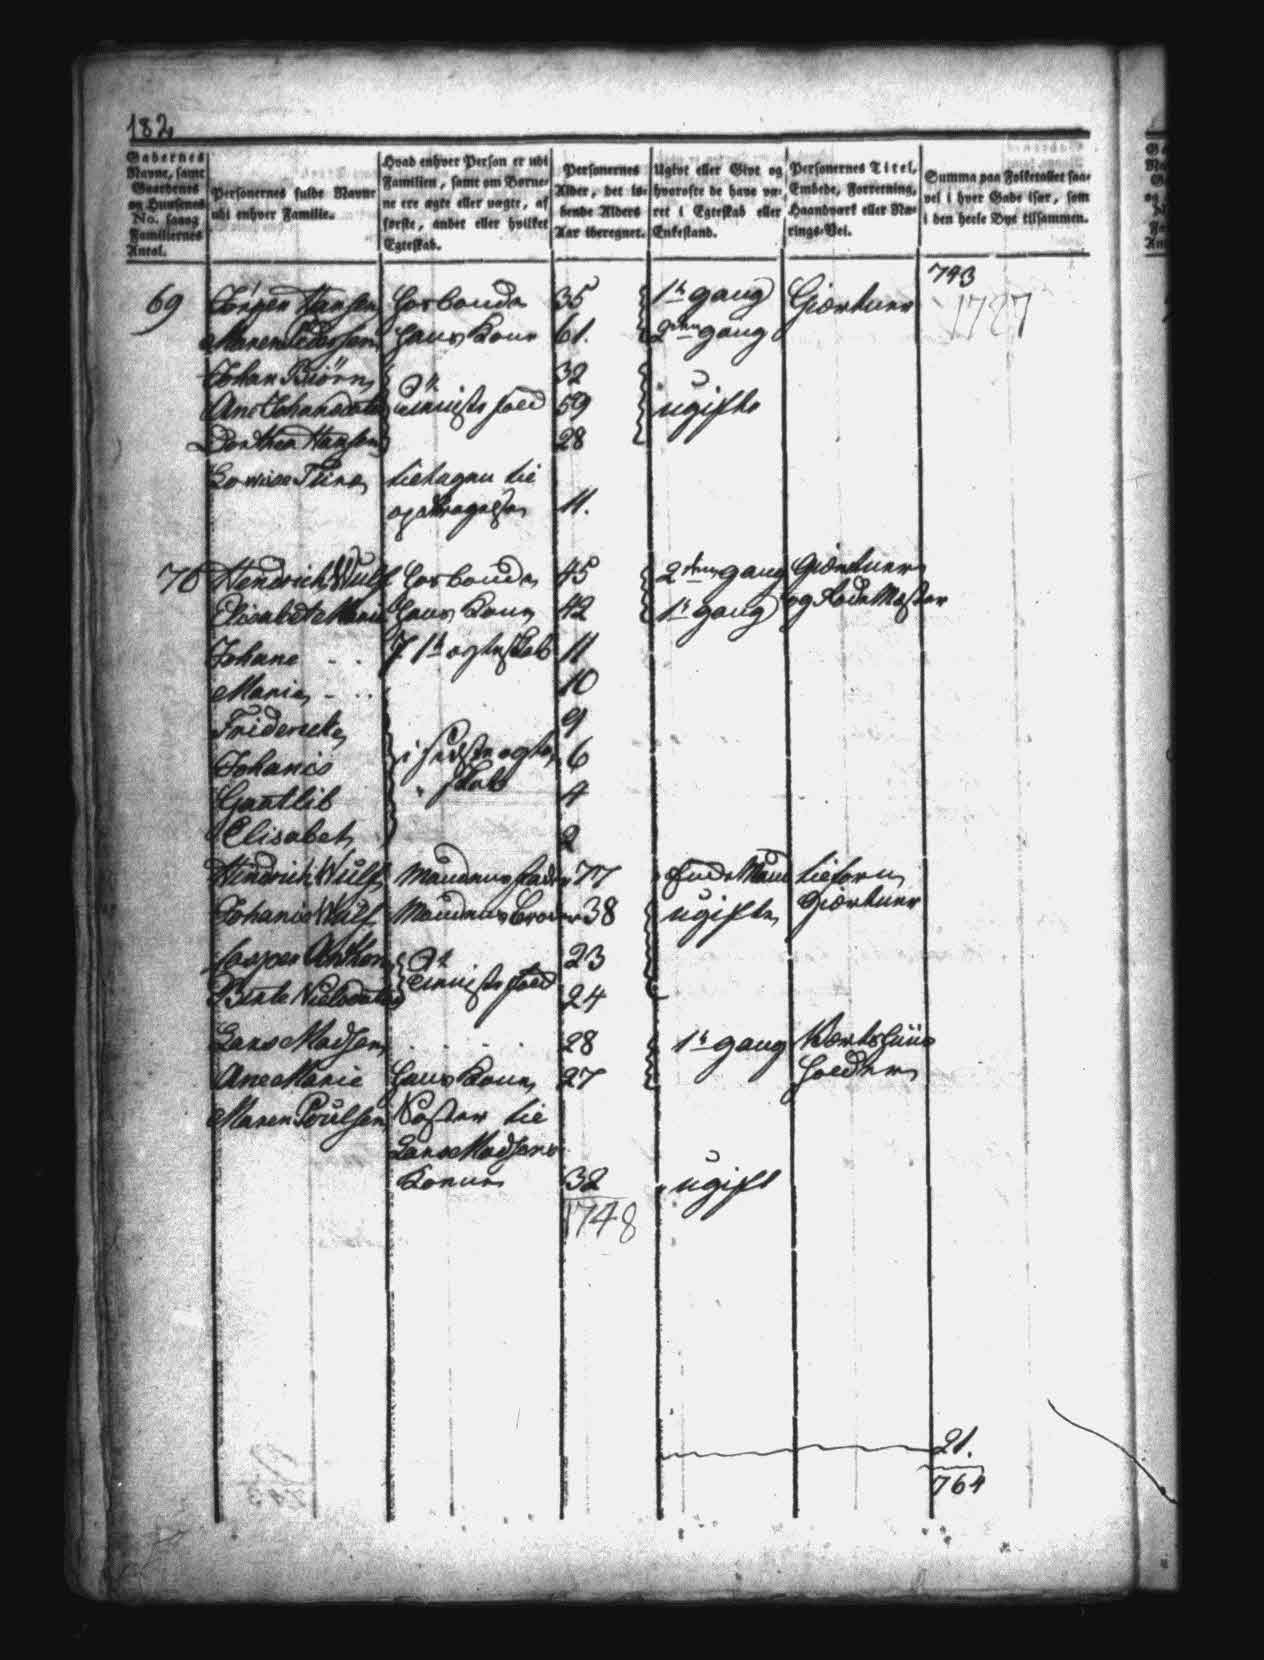 182
Gadernes Navne, samt Gaardenes og Huusenes No. saaog Familiernes Antal.
Personernes fulde Navne udi enhver Familie.
Hvad enhver Person er udi Familien, samt om Børnene ere ægte eller uægte, af første, andet eller hvilket Egteskab.
Personernes Alder, det løbende Alders Aar iberegnet.
Ugivt eller Givt og hvorofte de have været i Egteskab eller Enkestand.
Personernes Titel, Embede, Forretning, Haandværk eller Nærings-Vei.
Summa paa Folketallet saavel i hver Gade især, som i den heele Bye tilsammen.
743
1787
69 Jørgen Hansen Hosbonde 35 1te gang Giærtner
Maren Pedersen Hans Kone 61. 2den gang
Johan Biörn 32
Ane Johansdatter 59 ugifte
Dorthea Hansen 28
Lowise Tiine
11.
70 Hendrich Wulf Hosbonde 45 2den gang Giærtner
Elisabet Marie Hans Kone 42 1te gang og
Johane 11
Maria 10
Friderike 9
Johanis 6
Gautlib 4
Elisabet 2
Hindrich Wulf Mandens Fader 77
Johanis Wulf Mandens Broder 38 ugifte Giærtner
Jasper 23
Birte Nielsdatter 24
Lars Madsen 28 1te gang
Ane Marie Hans Kone 27
Maren Poulsen Søster til
Lars Madsens
Kone 32 ugift
1748
21.
764